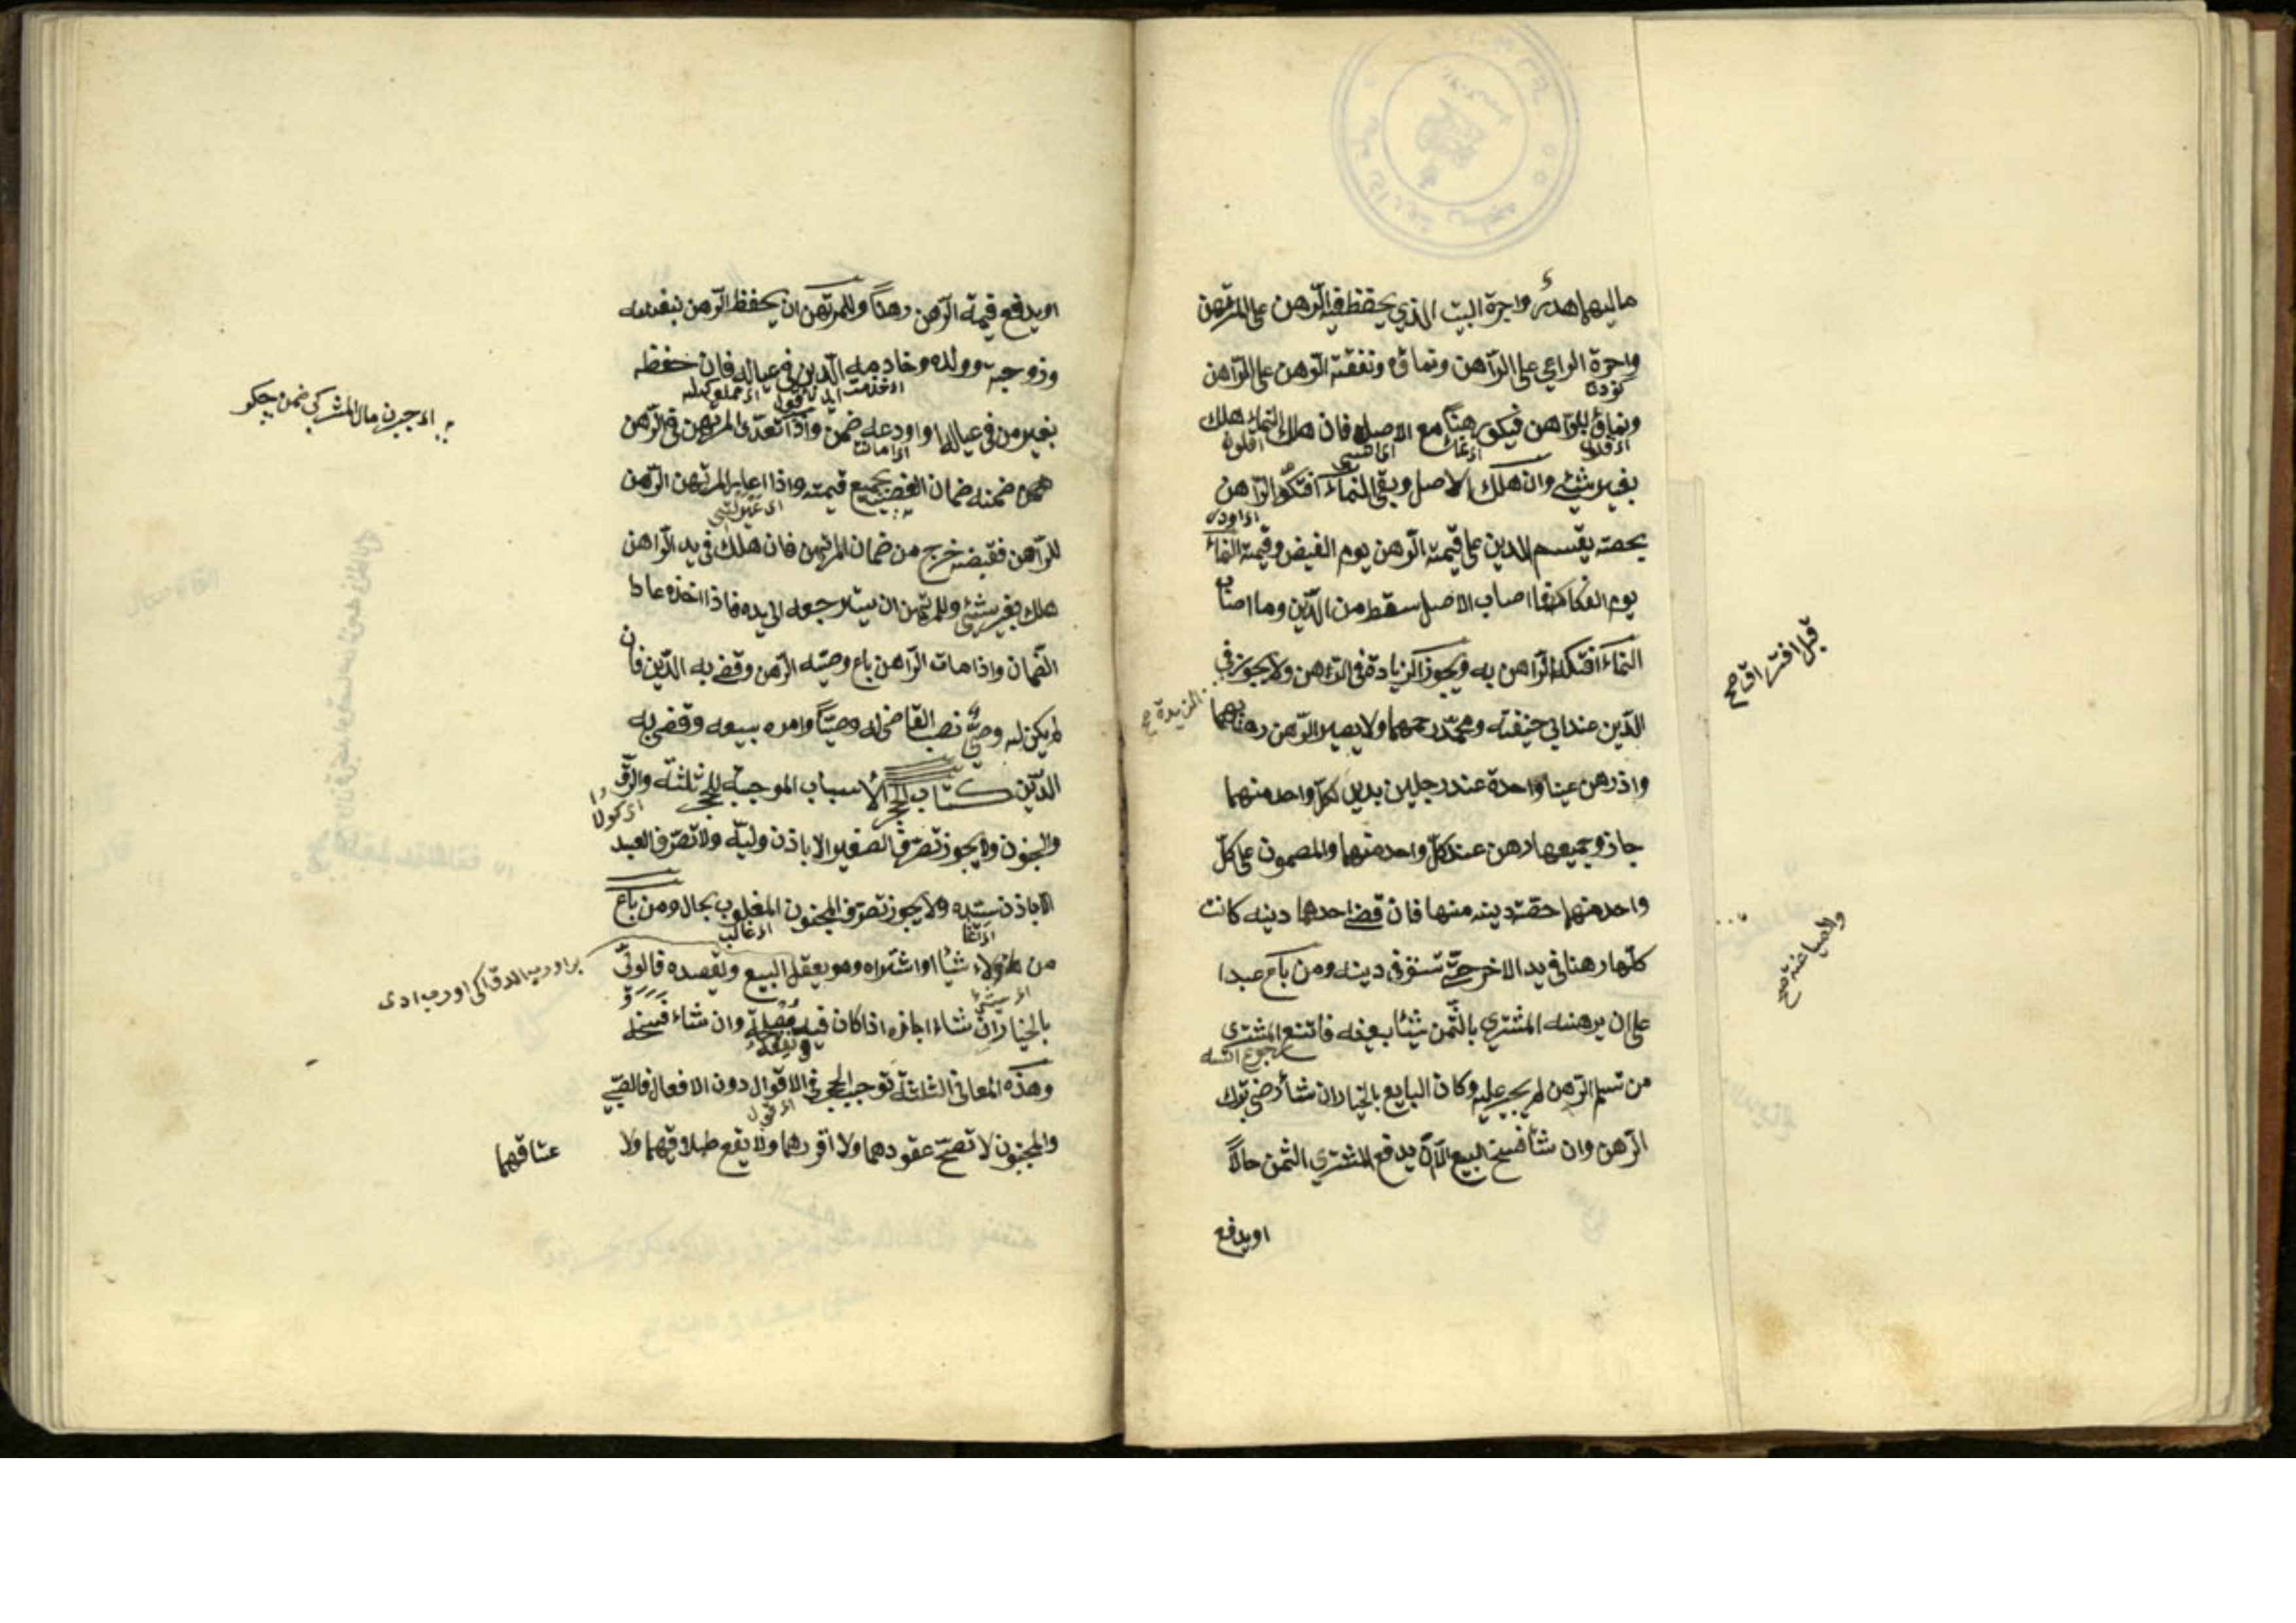 ماليهما هدر واجرة البيت الذي يحفظ فيه الرهن على المرتهن
واجرة الراعي على الراهن ونماؤه ونفقته الرهن على الراهن
ونماؤ للراهن فيكون رهناً مع الاصل فان هلك النماء هلك
بغير شيئ وان هلك الاصل وبقي النماء افتكه الراهن
بحصته يقسم الدين على قيمة الرهن يوم القبض وقيمة النماء
يوم الفكاك فما اصاب الاصل سقط من الدّين وما اصاب
النماء افتكه الراهن به ويجوز الزيادة في الرهن ولا يجوز في
الدّين عند ابي حنيفته ومحمّد رحمهما ولا يصير الرهن رهنا بهما
واذ رهن عينا واحدة عند رجلين بدين لكلّ واحد منهما
جاز وجميعها رهن عند كلّ واحد منهما والمضمون على كلّ
واحد منهما حصّة دينه منها فان قضى احدهما دينه كانت
كلّها رهنا في يد الاخر حتّى تستوفي دينه ومن باع عبدا
على ان يرهنه المشتري بالثّمن شيئا بعينه فامتنع المشتري
من تسليم الرهن لم يجبر عليه وكان البايع بالخيار ان شاء رضي بترك
الرّهن وان شاء فسخ البيع الّا ان يدفع المشتري الثمن حالّاً
اويدفع
قبل افتراق صح
اويدفع قيمة الرّهن رهناً وللمرتهن ان يحفظ الرّهن بنفسه
وزوجته وولده وخادمه الّذين في عياله فان حفظه
بغير من في عياله او اودعه ضمن واذا تعدّى المرتهن في الرّهن
ضمنه ضمان الغصب بجميع قيمته واذا اعار المرتهن الرّهن
للرّاهن فقبضه خرج من ضمان المرتهن فان هلك في يد الرّاهن
هلك بغير شيئ وللمرتهن ان يسترجعه الى يده فاذا اخذه عاد
الضّمان واذا مات الرّاهن باع وصيّه الرّهن وقضى به الدّين فان
لم يكن له وصيّ نصب القاضى له وصيّاً وامره ببيعه وقضى به
الدّين كتاب الحجر الأسباب الموجبة للحجر ثلثة والرّقّ
والجنون ولا يجوز تصرّف الصغير الا باذن وليّه ولا تصرّف العبد
الا باذن سيّده ولا يجوز تصرّف المجنون المغلوب بحال ومن باع
من هؤلاء شيئا او اشتراه وهو يعقل البيع ويقصده فالوليّ
بالخيار ان شاء اجازه اذا كان فيه مصلحة وان شاء فسخه
وهذه المعاني الثلثة توجب الحجر في الاقوال دون الافعال فالصّبي
والمجنون لا تصحّ عقودهما ولا اقررهما ولا يقع طلاقهما ولا
عتاقهما